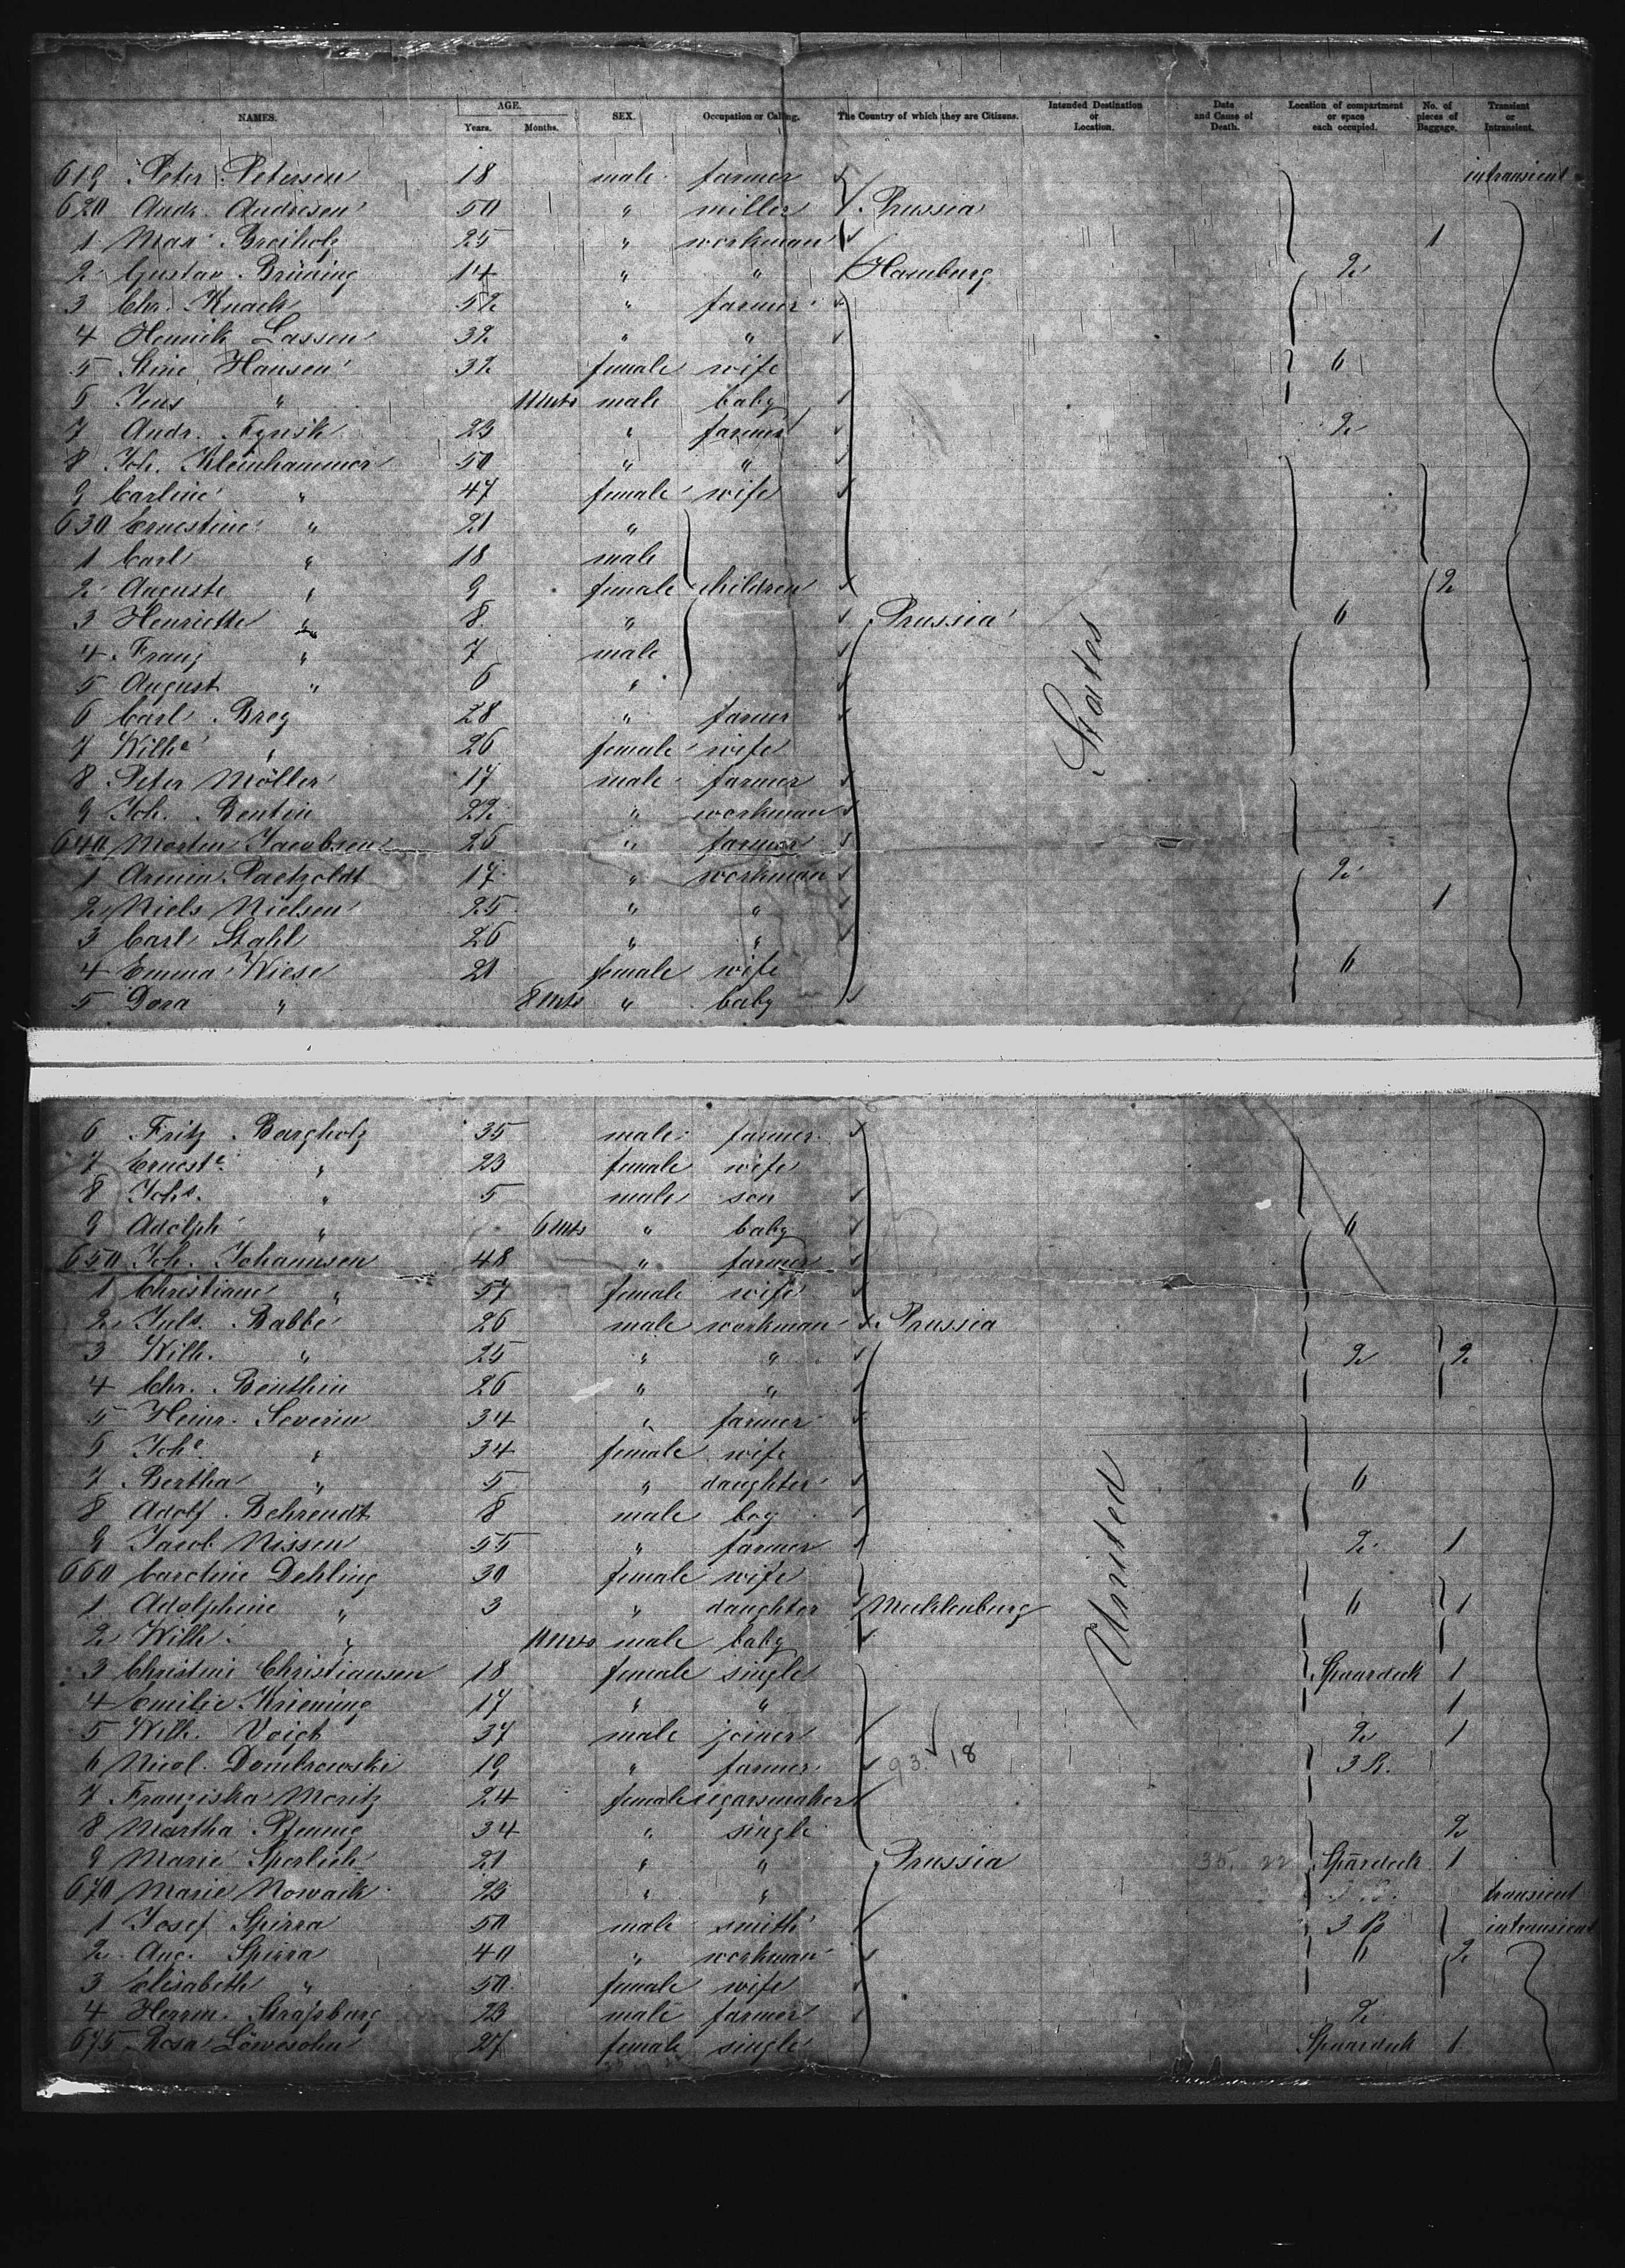 NAMES. AGE. Years. Months. SEX. Occupation or Calling. The Country of which they are Citizens. Intended Destination or Location. Date and Cause of Death. Location of compartment or space each occupied. No. of pieces of Baggage. Transient or Intransient.
619 Peter Petersen 18 male farmer intransient
620 Andr. Andresen 50 " miller Prussia
1 Max Breiholz 25 " workman 1
2 Gustav Brüning 14 " " Hamburg 2
3 Chr. Knack 52 " farmer
4 Henrich Lassen 32 " "
5 Stine Hansen 32 female wife 6
6 Jens " 11 mts male baby
7 Andr. 23 " farmer 2
8 Joh. Kleinhammer 50 " "
9 Carline " 47 female wife
630 Ernestine " 21 "
1 Carl " 18 male
2 Auguste " 9 female children 2
3 Henriette " 8 " Prussia 6
4 Franz " 7 male
5 August " 6 "
6 Carl Breg 28 " farmer
7 Wilhe " 26 female wife
8 Peter Möller 17 male farmer
9 Joh. Bentin 22 " workman
640 Morten Jacobsen 26 " farmer
1 Armin Paetzoldt 17 " workman 2
2 Niels Nielsen 25 " " 1
3 Carl Stahl 26 " "
4 Emma Wiese 21 female wife 6
5 Dora " 8 mts " baby
States
6 Fritz Bargholz 35 male farmer
7 Erneste " 23 female wife
8 Johs. " 5 male son
9 Adolph " 6 mts " baby 6
650 Joh. Johannsen 48 " farmer
1 Christiane " 57 female wife
2 Juls. Babbe 26 male workman Prussia
3 Wilh. " 25 " " 2 2
4 Chr. Benthin 26 " "
5 Heinr. Severin 34 " farmer
6 Johe " 34 female wife
7 Bertha " 5 " daughter 6
8 Adolf Behrendt 8 male boy
9 Jacob Nissen 55 " farmer 2 1
660 Caroline Dehling 30 female wife
1 Adolphine " 3 " daughter Mecklenburg 6 1
2 Wilh. " 11 mts male baby
3 Christine Christiansen 18 female single Spaardeck 1
4 Emilie Kriening 17 " " 1
5 Wilh. Voigt 37 male joiner 2 1
6 Nicol. Dombrowski 19 " farmer 93 18 3 R.
7 Franziska Moritz 24 female cigarsmaker
8 Martha Pfennig 34 " single 2
9 Marie Sperlich 21 " " Prussia 35. 22 Spardeck 1
670 Marie Nowack 23 " " transient
1 Josef Spirra 50 male smith 3 R intransient
2 Aug. Spirra 40 " workman 6 2
3 Elisabeth " 50 female wife
4 Herrm. Straßburg 23 male farmer 2
675 Rosa Löwesohn 27 female single Spaardeck 1
United